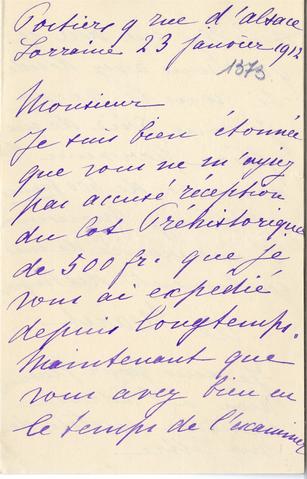 Poitiers 9 rue d'alsace
Lorraine 23 janvier 1912
1373
Monsieur
Je suis bien étonnée
que vous ne m'ayiez
pas accusé réception
du Lot Préhistorique
de 500 fr. que je
vous ai expedié
depuis longtemps.
Maintenant que
vous avez bien eu
le temps de l'examiner